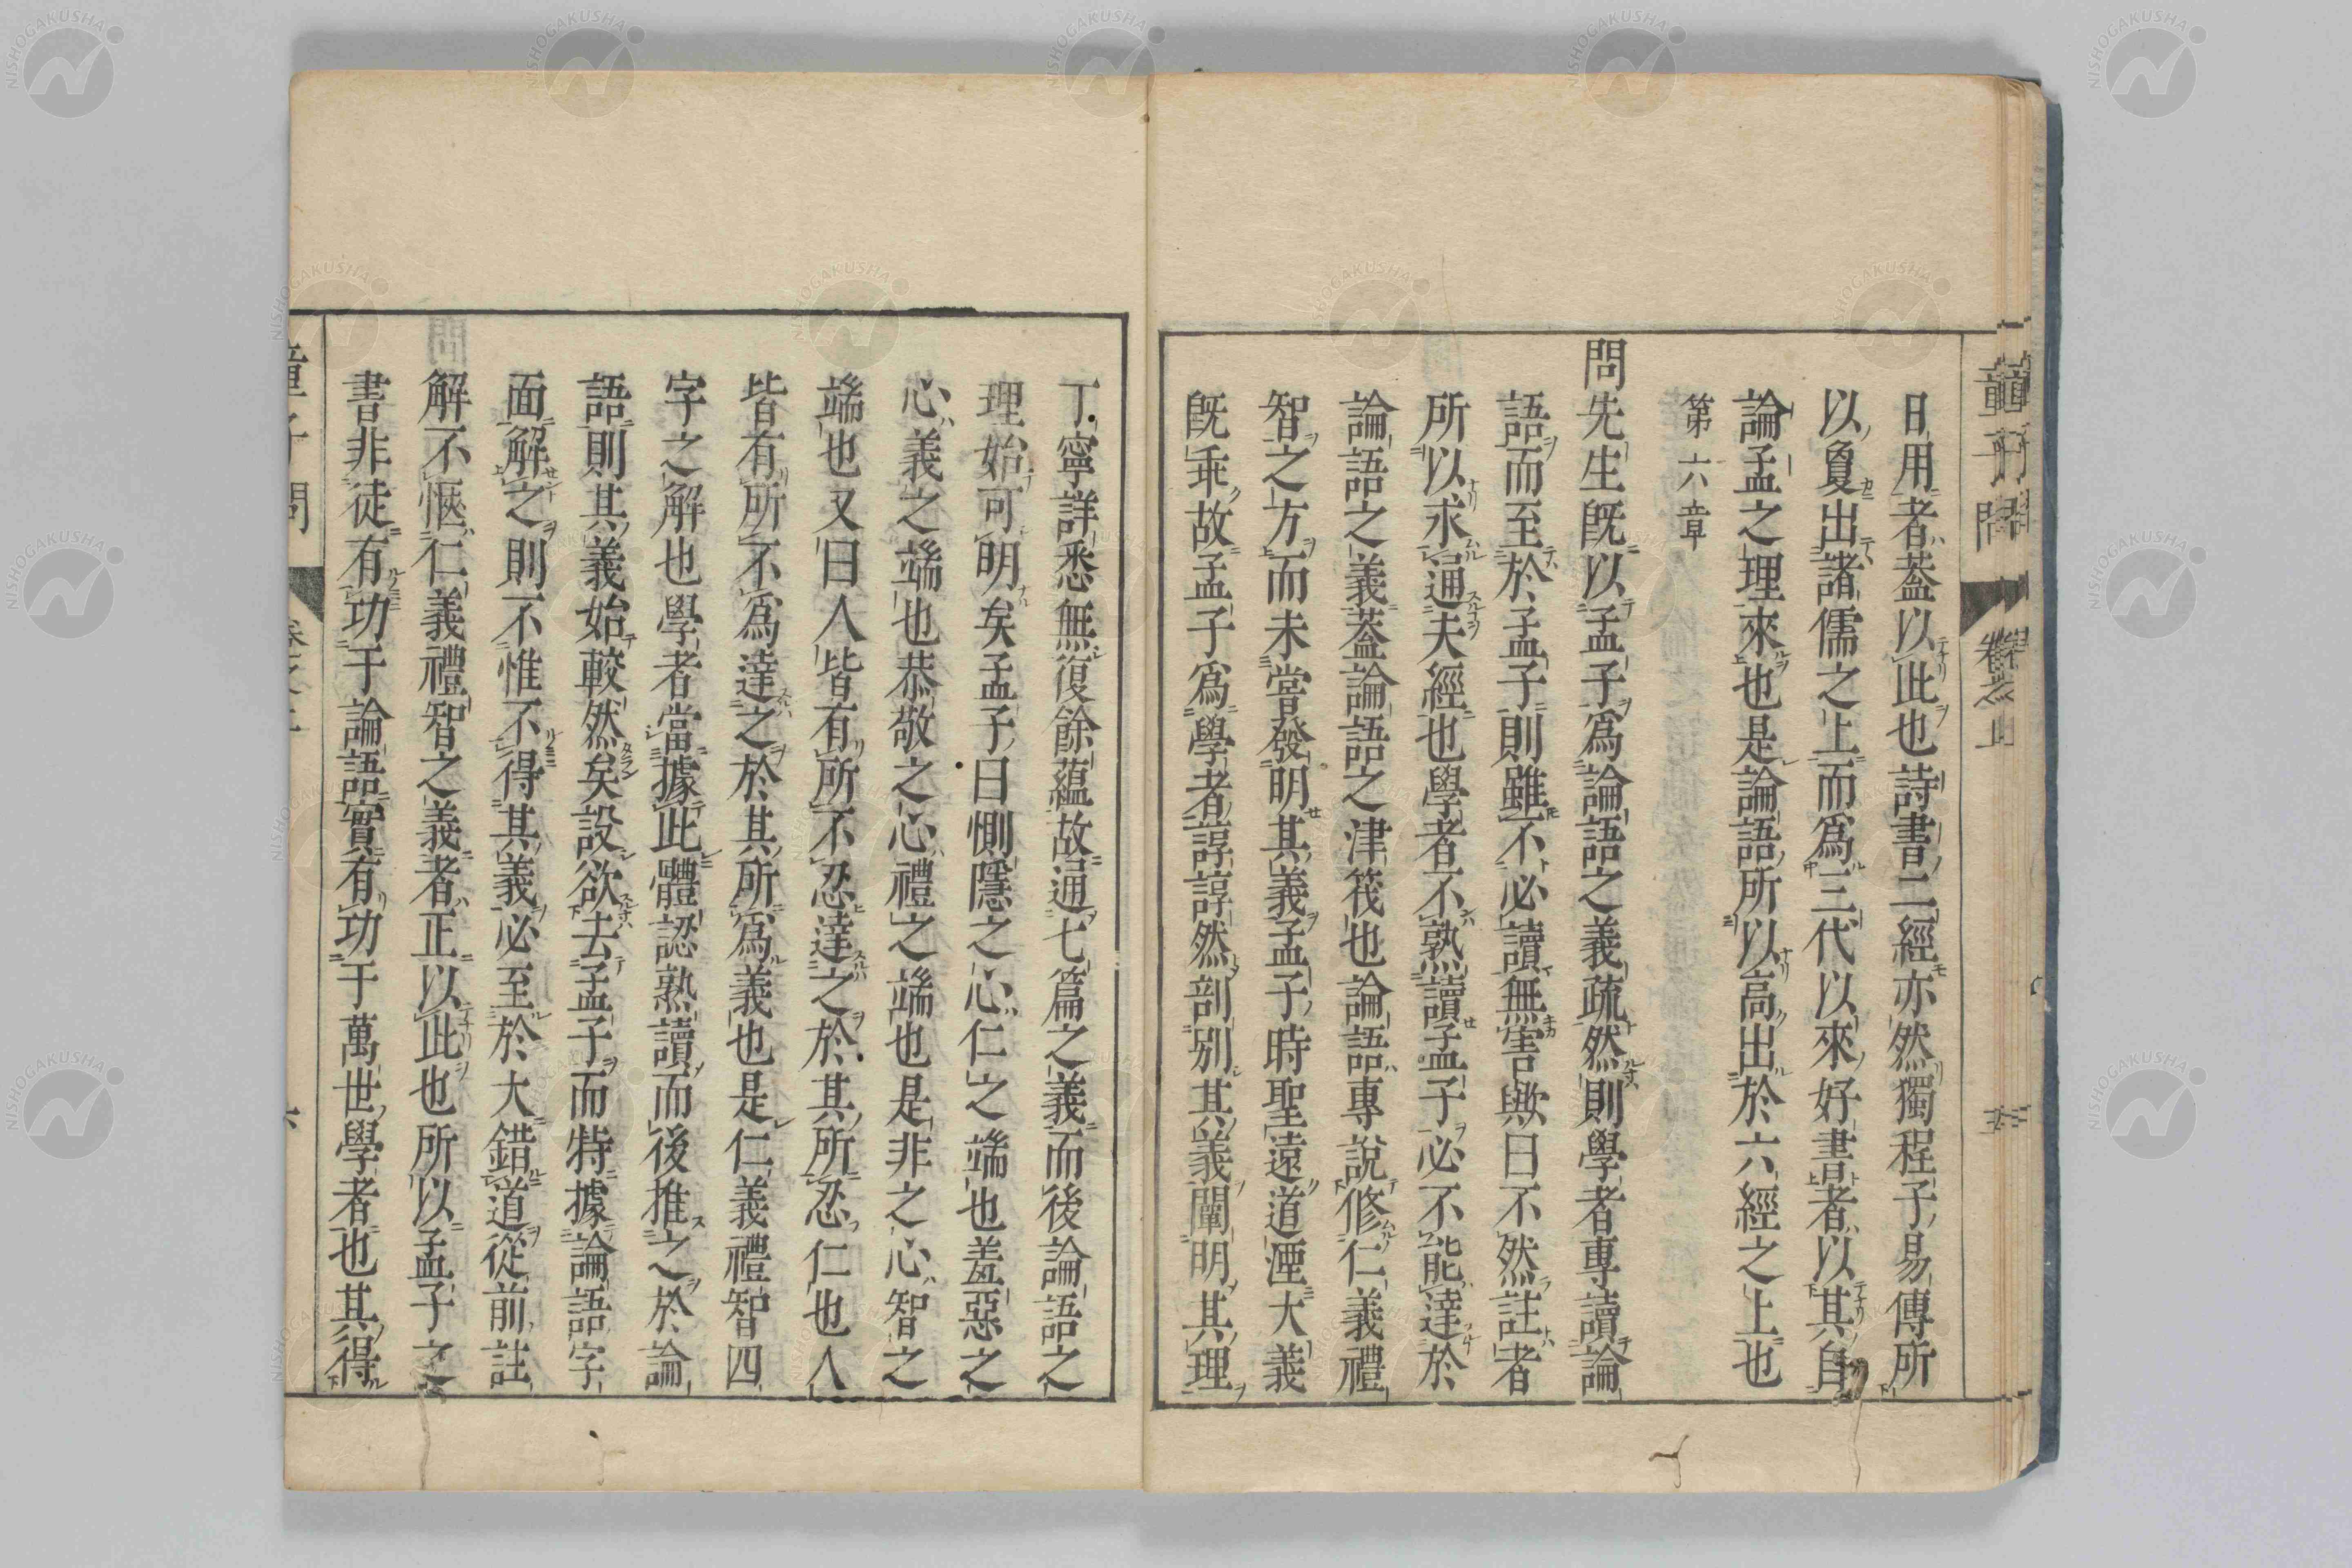 日用者蓋以此也詩書二經亦然獨程子易傳所
以夐出諸儒之上而爲三代以來好書者以其自
論孟之理來也是論語所以高出於六經之上也
第六章
問先生既以孟子爲論語之義疏然則學者專讀論
語而至於孟子則雖不必讀無害歟曰不然註者
所以求通夫經也學者不熟讀孟子必不能達於
論語之義蓋論語之津筏也論語專說修仁義禮
智之方而未嘗發明其義孟子時聖遠道湮大義
既乖故孟子爲學者諄諄然剖別其義闡明其理
丁寧詳悉無復餘蘊故通七篇之義而後論語之
理始可明矣孟子曰惻隱之心仁之端也羞惡之
心義之端也恭敬之心禮之端也是非之心智之
端也又曰人皆有所不忍達之於其所忍仁也人
皆有所不爲達之於其所爲義也是仁義禮智四
字之解也學者當據此體認熟讀而後推之於論
語則其義始較然矣設欲去孟子而特據論語字
面解之則不惟不得其義必至於大錯道從前註
解不愜仁義禮智之義者正以此也所以孟子之
書非徒有功于論語實有功于萬世學者也其得
童子問